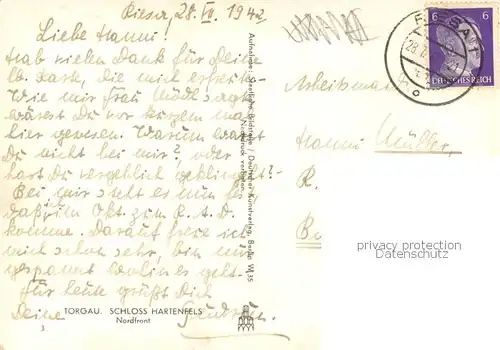 Riesa, 28. VII. 1942
Liebe Hanni!
Hab vielen Dank für Deine
lb. Karte, die mich
Wie mir Frau sagt,
wärest Du vor kurzem mal
hier gewesen. Warum warst
Du nicht bei mir? oder
hast Du vergeblich geklingelt?
Bei mir steht es nun fest,
daß ich im Okt. zum R.A.D.
komme. Darauf freue ich
mich schon sehr, bin nur
gespannt wohin es geht.
Für heute grüßt Dich
Deine
TORGAU. SCHLOSS HARTENFELS
Nordfront
3
Aufnahme: Staatliche Bildstelle · Deutscher Kunstverlag, Berlin W 35
Nachdruck verboten
6 6
DEUTSCHES REICH
28.7.
c
Arbeitsmaid
Hanni Müller,
R.
B
propriety of
AKPOOL GmbH